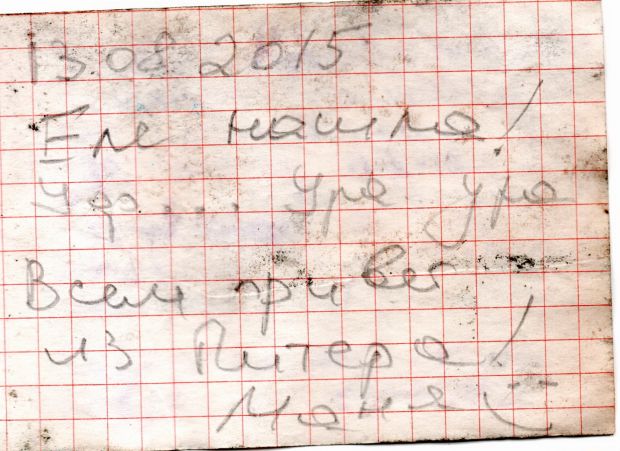 13.08.2015
Еле нашла!
Ура.... Ура Ура
Всем привет
из Питера!
Маня